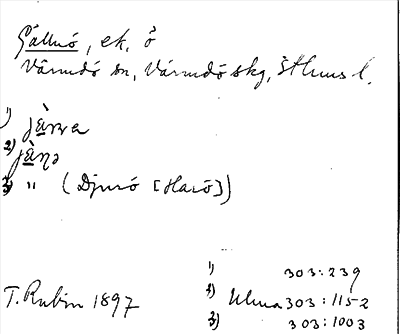 Gällnö, ek. ö
Värmdö sn, Värmdö skg, Sthlms l.
1) jä̀nna
2) jä̀nə
3) " (Djurö [Harö])
T. Rubin 1897
1) 303:239
2) Ulma 303:1152
3) 303:1003